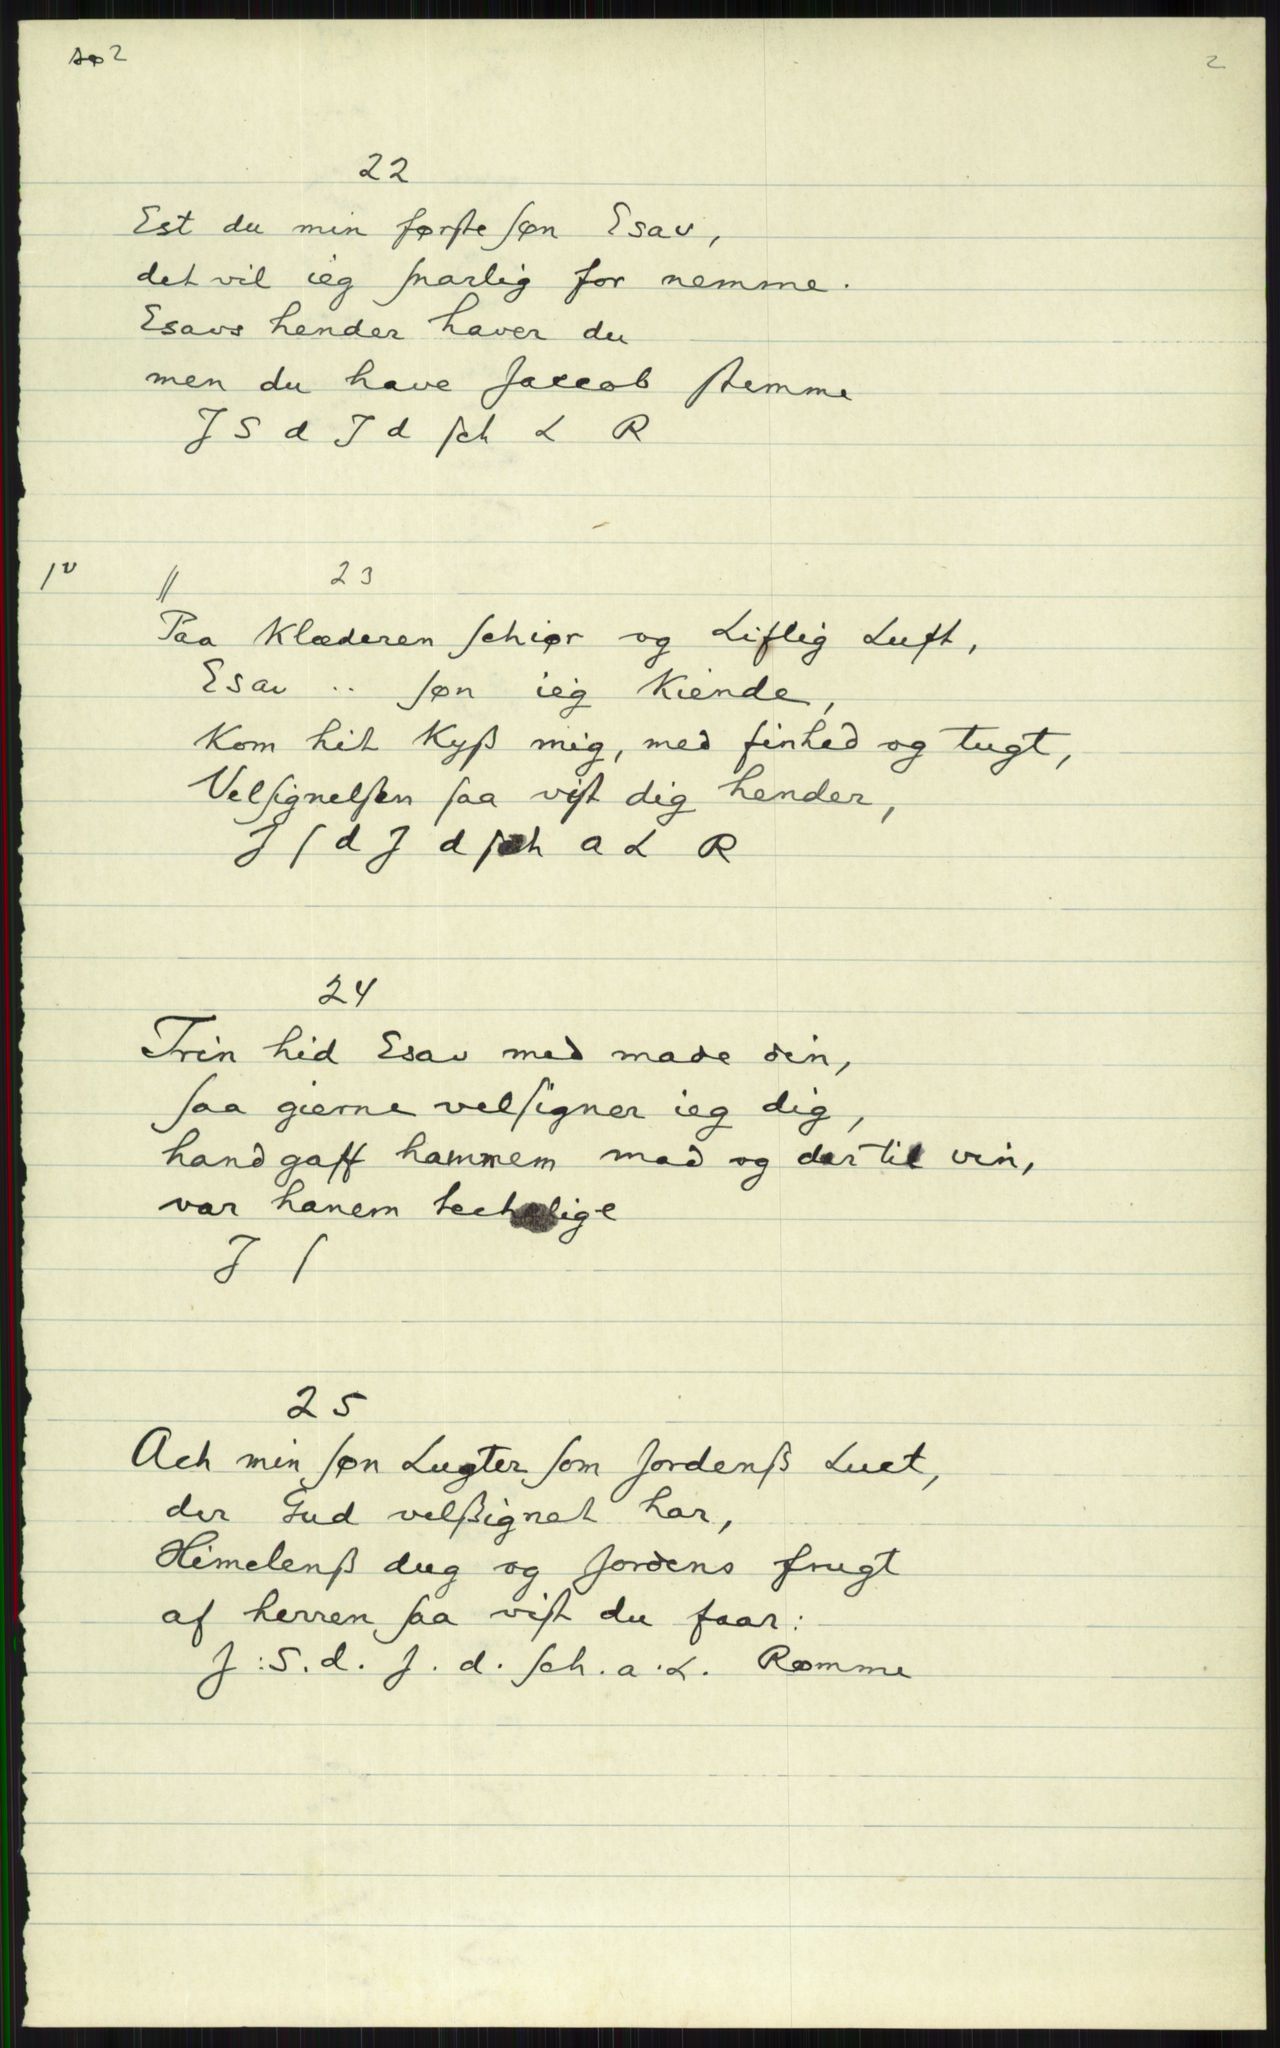 sø 2
2
22
Est du min førſte ſøn Esau,
det vil ieg ſnarlig for nemme.
Esaus hender haver du
men du have Jaccob ſtemme
J S d J d ſch L R
1v // 23
Paa Klæderen ſchiør og Liflig Luft,
Esau .. ſøn ieg Kiende,
Kom hit Kyß mig, med finhed og tugt,
Velſignelſen ſaa viſt dig hender,
J ſ d J d ſch a L R
24
Trin hid Esau med made din,
ſaa gierne velſigner ieg dig,
hand gaff hammem mad og der til vin,
var hanem
J ſ
25
Ach min ſøn Lugter ſom Jordenß Luct,
der Gud velßignet har,
Himelenß dug og Jordens frugt
af herren ſaa viſt du faar:
J:S.d. J. d. ſch. a. L. Romme